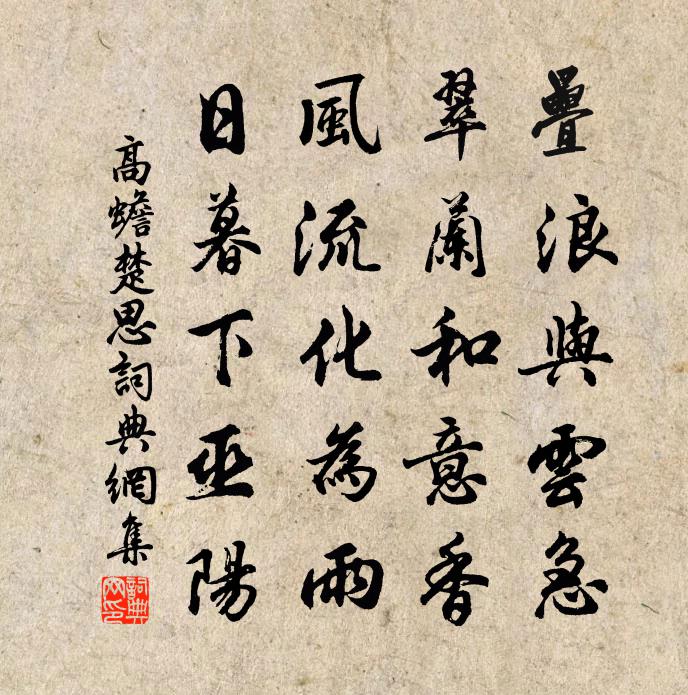 疊浪與雲急
翠蘭和意香
風流化為雨
日暮下巫陽
高蟾楚思詞典網集
詞典網印